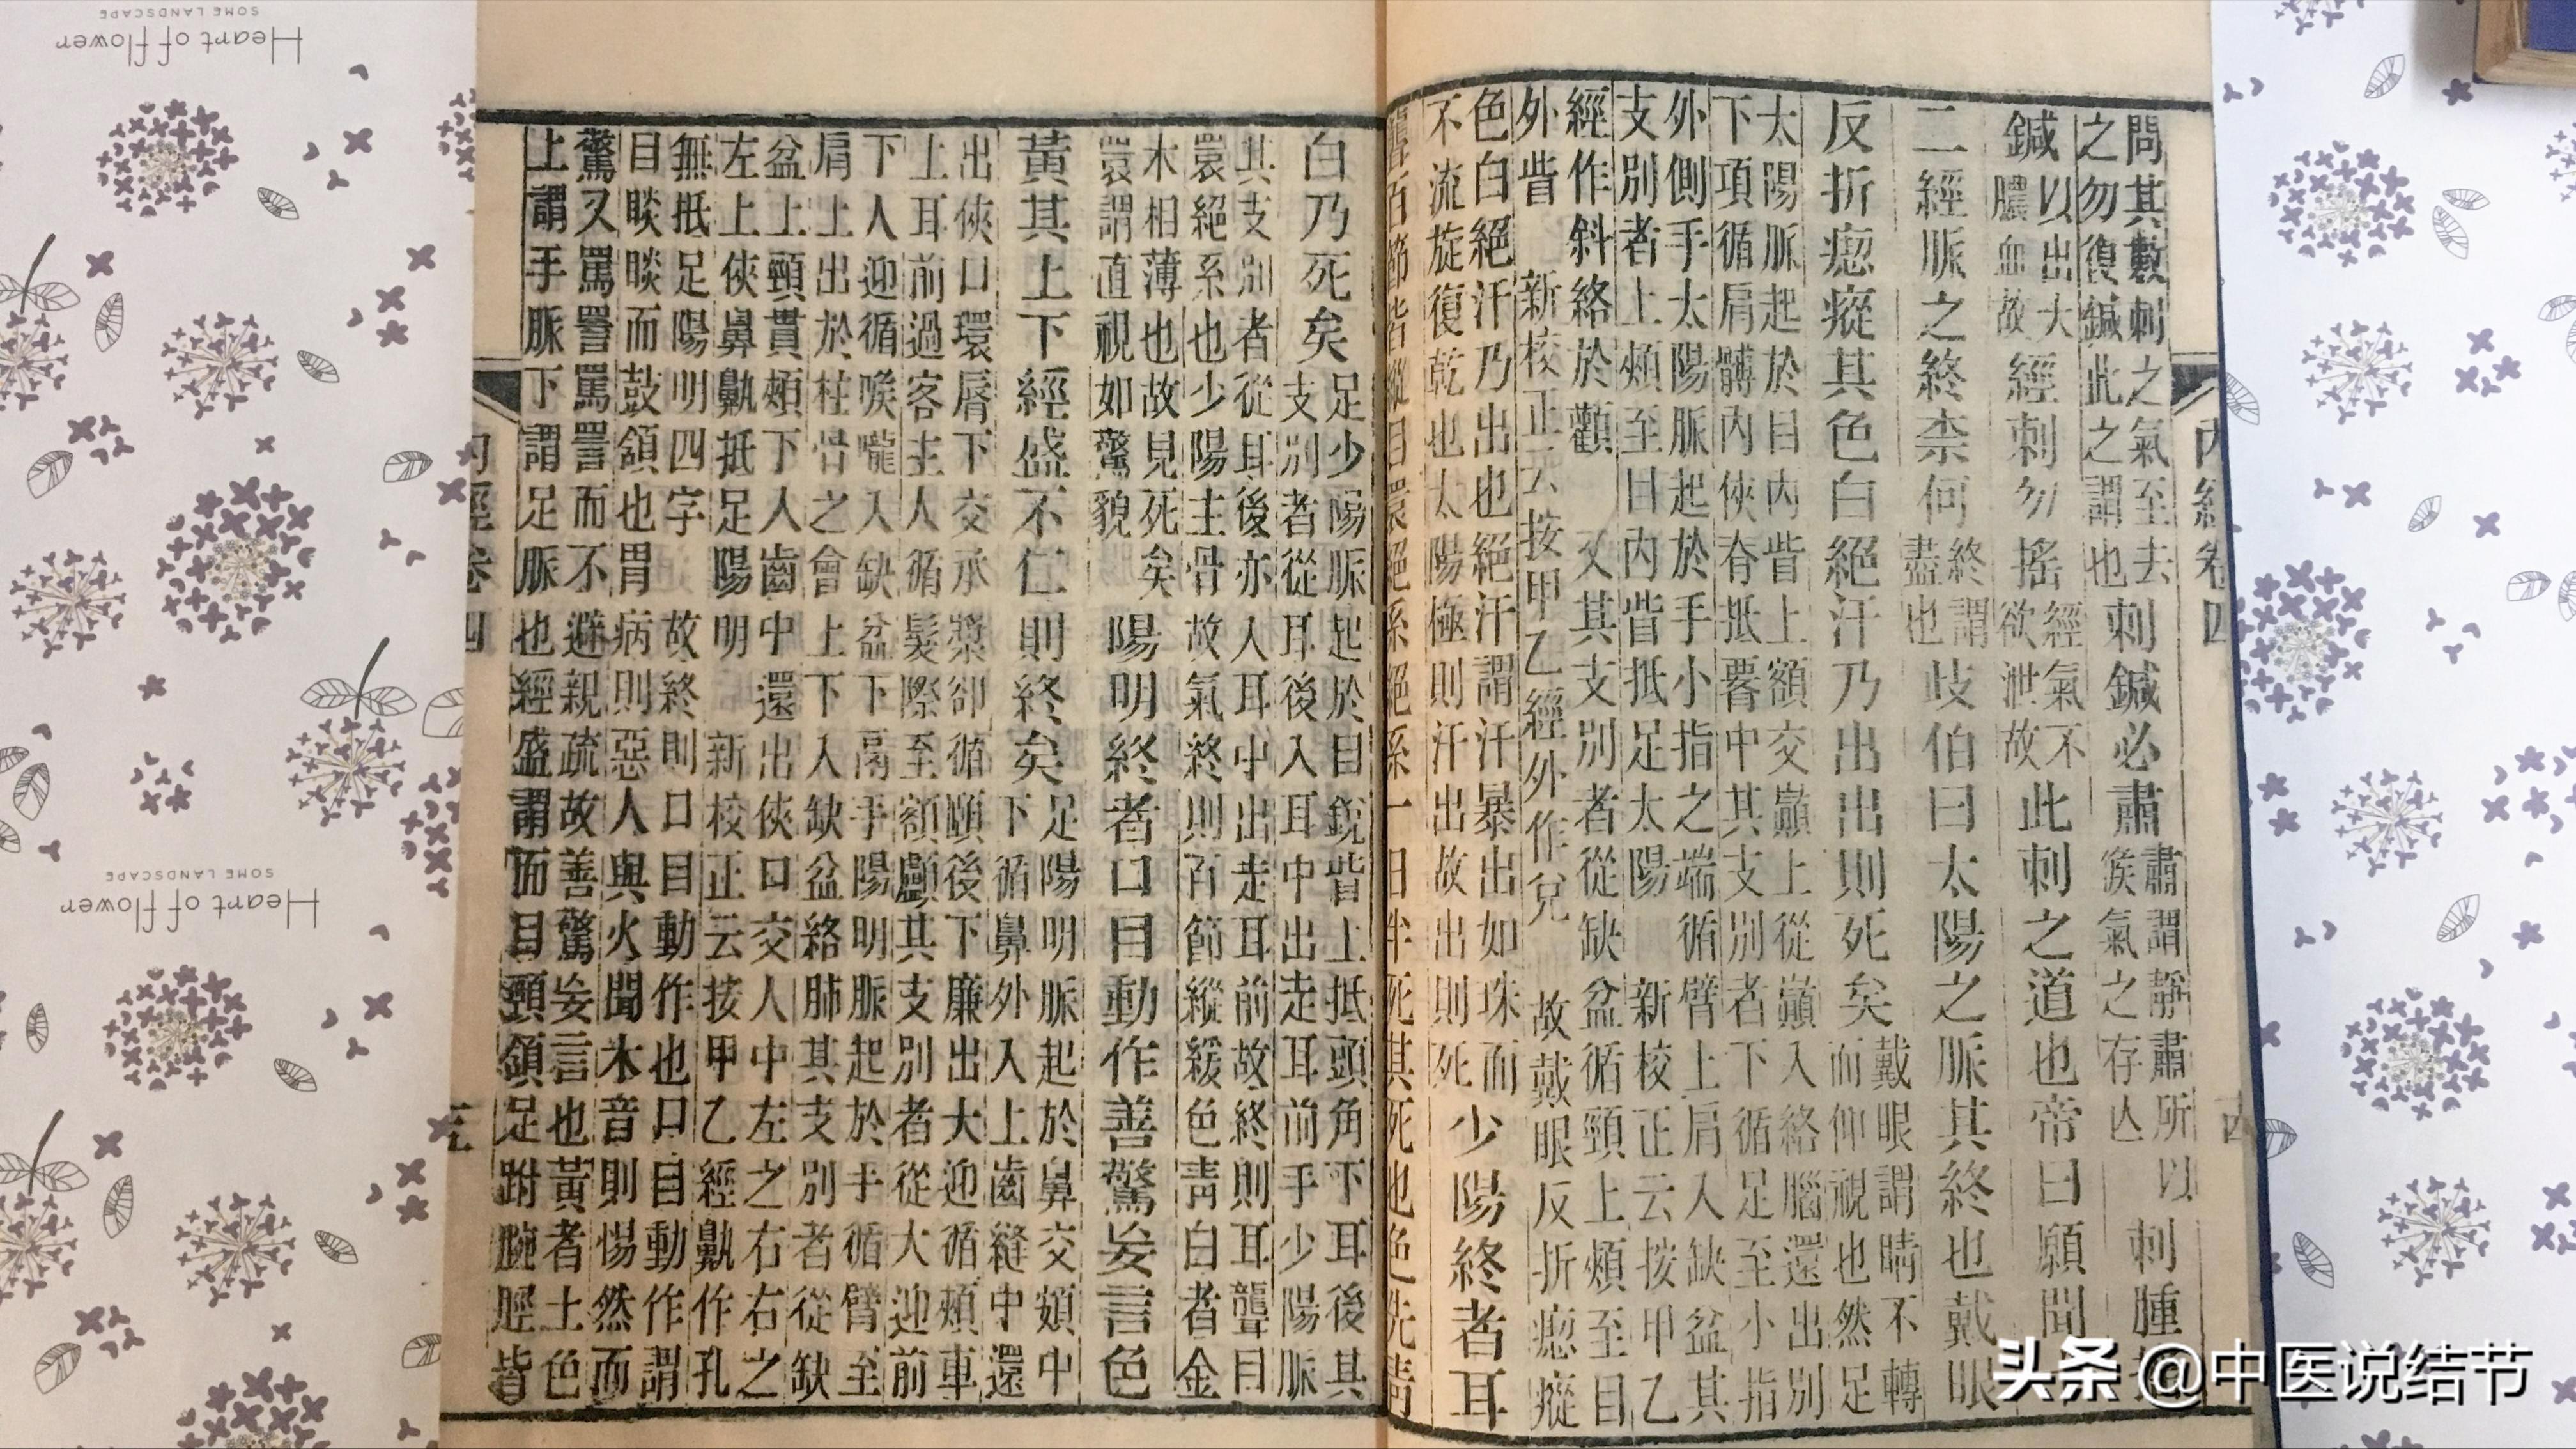 內經卷四
問其數刺之氣至去
之勿復鍼此之謂也
刺鍼必肅
肅謂靜肅所以
候氣之存亡
刺腫
鍼
以出大
膿血故
經刺勿搖
經氣不
欲泄故
此刺之道也帝曰願聞
二經脈之終柰何
終謂
盡也
岐伯曰太陽之脈其終也戴眼
反折瘛瘲其色白絕汗乃出出則死矣
戴眼謂睛不轉
而仰視也然足
太陽脈起於目內眥上額交巔上從巔入絡腦還出別
下項循肩髆內俠脊抵䁂中其支別者下循足至小指
外側手太陽脈起於手小指之端循臂上肩入缺盆其
支別者上頰至目內眥抵足太陽 新校正云按甲乙
經作斜絡於顴 又其支別者從缺盆循頸上頰至目
外眥 新校正云按甲乙經外作兌 故戴眼反折瘛瘲
色白絕汗乃出也絕汗謂汗暴出如珠而
不流旋復乾也太陽極則汗出故出則死
少陽終者耳
聾百節皆縱目睘絕系絕系一日半死其死也色先青
白乃死矣
足少陽脈起於目銳眥上抵頭角下耳後其
支別者從耳後入耳中出走耳前手少陽脈
其支別者從耳後亦入耳中出走耳前故終則耳聾目
睘絕系也少陽主骨故氣終則百節縱緩色青白者金
木相薄也故見死矣
睘謂直視如驚貌
陽明終者口目動作善驚妄言色
黃其上下經盛不仁則終矣
足陽明脈起於鼻交頞中
下循鼻外入上齒縫中還
出俠口環脣下交承漿卻循頤後下廉出大迎循頰車
上耳前過客主人循髮際至額顱其支別者從大迎前
下人迎循喉嚨入缺盆下鬲手陽明脈起於手循臂至
肩上出於柱骨之會上下入缺盆絡肺其支別者從缺
盆上頸貫頰下入齒中還出俠口交人中左之右右之
左上上俠鼻鼽抵足陽明 新校正云按甲乙經鼽作孔
無抵足陽明四字 故終則口目動作也口目動作謂
目睒睒而鼓頷也胃病則惡人與火聞木音則惕然而
驚又罵詈罵詈而不避親疏故善驚妄言也黃者土色
上謂手脈下謂足脈也經盛謂面目頸頷足跗腕脛皆
內經卷四
Heart of flower
SOME LANDSCAPE
Heart of flower
SOME LANDSCAPE
头条 @中医说结节